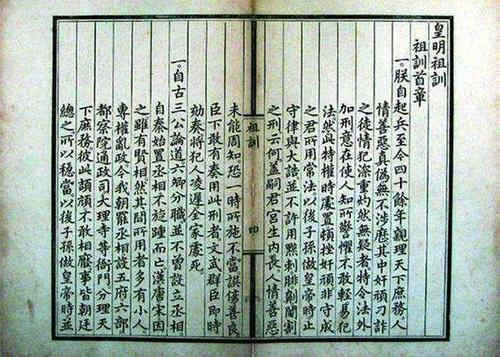 皇明祖訓
祖訓首章
一。朕自起兵至今四十餘年親理天下庶務人
情善惡真偽無不涉歷其中奸頑刁詐
之徒情犯深重灼然無疑者特令法外
加刑意在使人知所警懼不敢輕易犯
法然此特權時處置頓挫奸頑非守成
之君所用常法以後子孫做皇帝時止
守律與大誥並不許用黥刺腓劓閹割
之刑云何盖嗣君宮生内長人情善惡
祖訓
未能周知恐一時所施不當誤傷善良
臣下敢有奏用此刑者文武群臣即時
劾奏將犯人凌遲全家處死
一。自古三公論道六卿分職並不曾設立丞相
自秦始置丞相不旋踵而亡漢唐宋因
之雖有賢相然其間所用者多有小人
專權亂政今我朝罷丞相設五府六部
都察院通政司大理寺等衙門分理天
下庶務彼此頡頏不敢相壓事皆朝廷
總之所以穩當以後子孫做皇帝時並